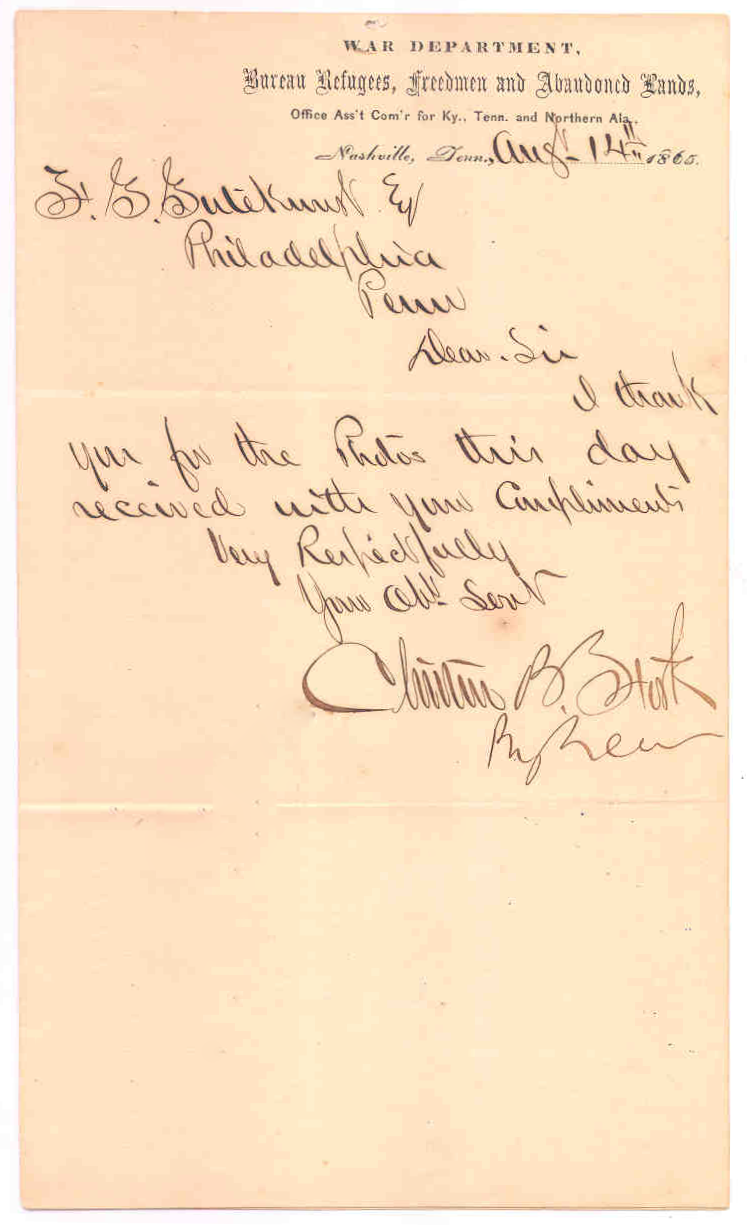 WAR DEPARTMENT,
Bureau Refugees, Freedmen and Abandoned Lands,
Office Ass't Com'r for Ky., Tenn. and Northern Ala.,
Nashville, Tenn., Augt 14th 1865.
F. G. Gutekunst Esq
Philadelphia
Penn
Dear Sir
I thank
you for the Photos this day
received with your Compliments
Very Respectfully
Your Obt. Servt
Clinton B. Fisk